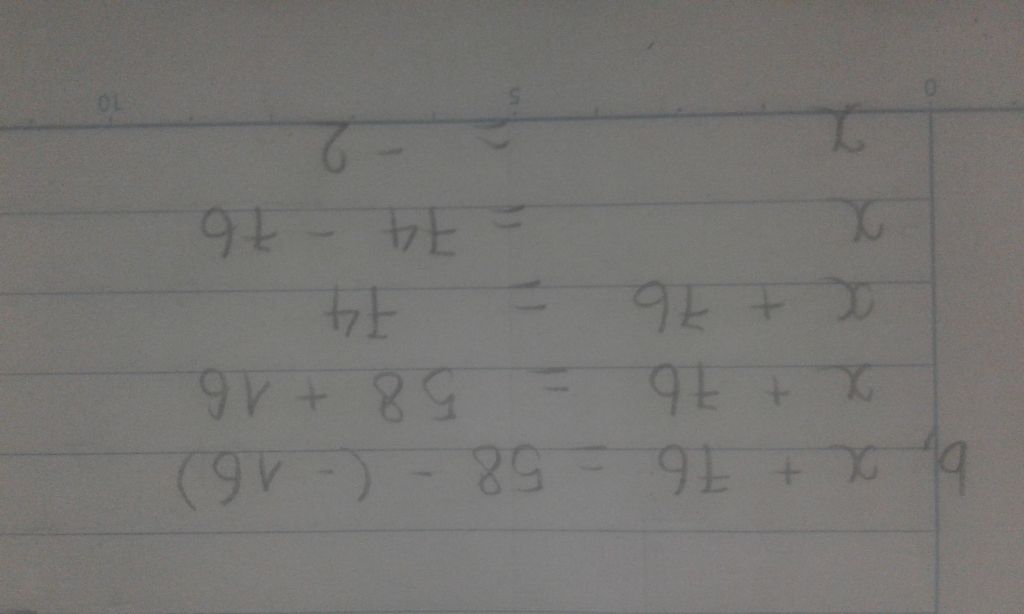 b, x + 76 = 58 - (-16)
x + 76 = 58 + 16
x + 76 = 74
x = 74 - 76
x = -2
0 5 10